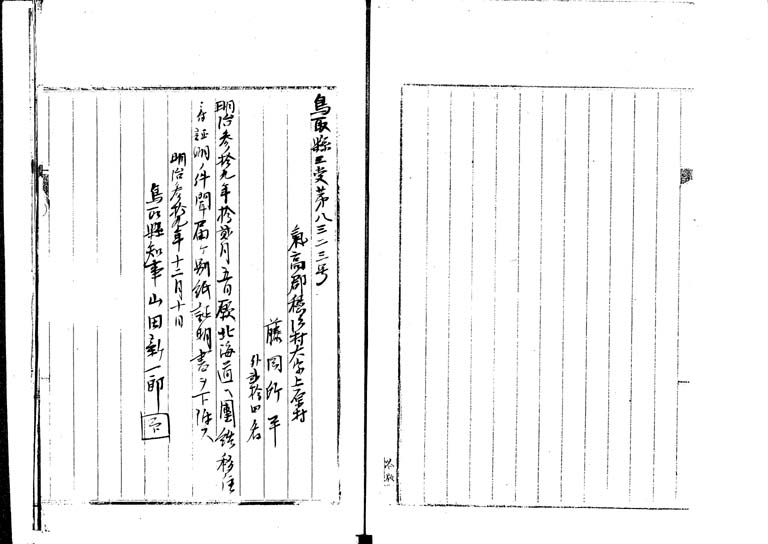 鳥取縣三受第八三二三号
氣高郡穂浪村大字上原村
藤岡所平
外弐拾四名
明治参拾九年拾弐月五日願北海道ヘ團体移住
証明ノ件聞届ケ別紙証明書ヲ下附ス
明治参拾九年十二月十日
鳥取縣知事山田新一郎